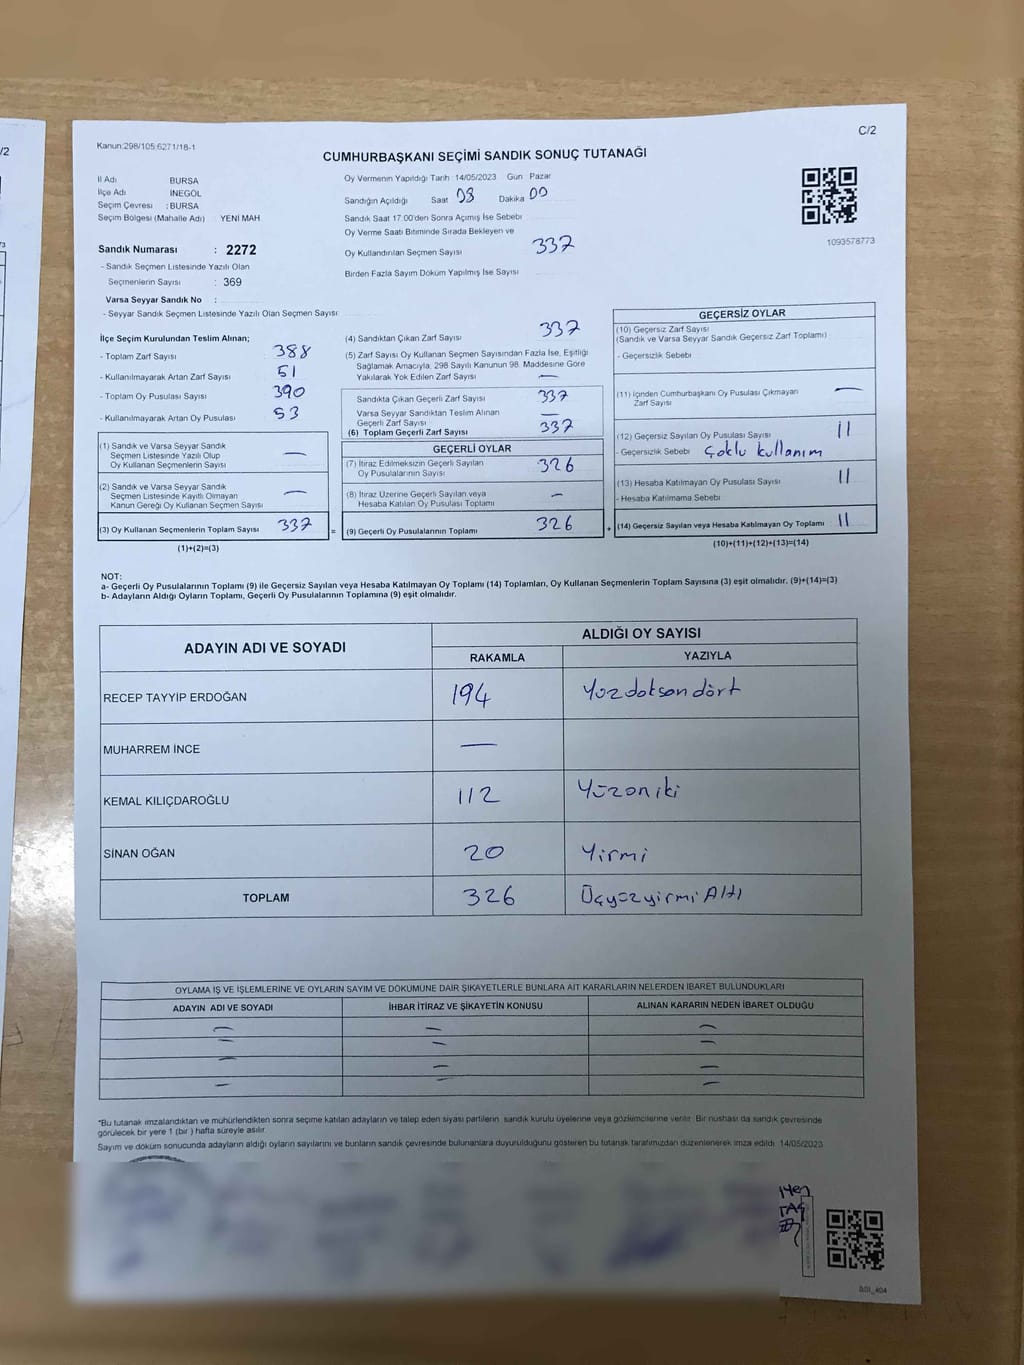 /2
C/2
Kanun:298/105;6271/18-1
CUMHURBAŞKANI SEÇİMİ SANDIK SONUÇ TUTANAĞI
İl Adı BURSA
İlçe Adı İNEGÖL
Seçim Çevresi : BURSA
Seçim Bölgesi (Mahalle Adı) YENİ MAH
Sandık Numarası : 2272
- Sandık Seçmen Listesinde Yazılı Olan
Seçmenlerin Sayısı : 369
Varsa Seyyar Sandık No :
- Seyyar Sandık Seçmen Listesinde Yazılı Olan Seçmen Sayısı
Oy Vermenin Yapıldığı Tarih 14/05/2023 Gün Pazar
Sandığın Açıldığı Saat 08 Dakika 00
Sandık Saat 17.00'den Sonra Açımış İse Sebebi
Oy Verme Saati Bitiminde Sırada Bekleyen ve
Oy Kullandırılan Seçmen Sayısı 337
Birden Fazla Sayım Döküm Yapılmış İse Sayısı
1093578773
İlçe Seçim Kurulundan Teslim Alınan;
- Toplam Zarf Sayısı 388
- Kullanılmayarak Artan Zarf Sayısı 51
- Toplam Oy Pusulası Sayısı 390
- Kullanılmayarak Artan Oy Pusulası 53
(1) Sandık ve Varsa Seyyar Sandık
Seçmen Listesinde Yazılı Olup
Oy Kullanan Seçmenlerin Sayısı —
(2) Sandık ve Varsa Seyyar Sandık
Seçmen Listesinde Kayıtlı Olmayan
Kanun Gereği Oy Kullanan Seçmen Sayısı —
(3) Oy Kullanan Seçmenlerin Toplam Sayısı 337
(1)+(2)=(3)
=
(4) Sandıktan Çıkan Zarf Sayısı 337
(5) Zarf Sayısı Oy Kullanan Seçmen Sayısından Fazla İse, Eşitliği
Sağlamak Amacıyla, 298 Sayılı Kanunun 98. Maddesine Göre
Yakılarak Yok Edilen Zarf Sayısı —
Sandıkta Çıkan Geçerli Zarf Sayısı 337
Varsa Seyyar Sandıktan Teslim Alınan
Geçerli Zarf Sayısı —
(6) Toplam Geçerli Zarf Sayısı 337
GEÇERLİ OYLAR
(7) İtiraz Edilmeksizin Geçerli Sayılan
Oy Pusulalarının Sayısı 326
(8) İtiraz Üzerine Geçerli Sayılan veya
Hesaba Katılan Oy Pusulası Toplamı —
(9) Geçerli Oy Pusulalarının Toplamı 326
+
GEÇERSİZ OYLAR
(10) Geçersiz Zarf Sayısı
(Sandık ve Varsa Seyyar Sandık Geçersiz Zarf Toplamı)
- Geçersizlik Sebebi
(11) İçinden Cumhurbaşkanı Oy Pusulası Çıkmayan
Zarf Sayısı —
(12) Geçersiz Sayılan Oy Pusulası Sayısı 11
- Geçersizlik Sebebi Çoklu kullanım
(13) Hesaba Katılmayan Oy Pusulası Sayısı 11
- Hesaba Katılmama Sebebi
(14) Geçersiz Sayılan veya Hesaba Katılmayan Oy Toplamı 11
(10)+(11)+(12)+(13)=(14)
NOT:
a- Geçerli Oy Pusulalarının Toplamı (9) ile Geçersiz Sayılan veya Hesaba Katılmayan Oy Toplamı (14) Toplamları, Oy Kullanan Seçmenlerin Toplam Sayısına (3) eşit olmalıdır. (9)+(14)=(3)
b- Adayların Aldığı Oyların Toplamı, Geçerli Oy Pusulalarının Toplamına (9) eşit olmalıdır.
ADAYIN ADI VE SOYADI
ALDIĞI OY SAYISI
RAKAMLA YAZIYLA
RECEP TAYYİP ERDOĞAN 194 Yüzdoksan dört
MUHARREM İNCE —
KEMAL KILIÇDAROĞLU 112 Yüzoniki
SİNAN OĞAN 20 Yirmi
TOPLAM 326 Üçyüzyirmi Altı
OYLAMA İŞ VE İŞLEMLERİNE VE OYLARIN SAYIM VE DÖKÜMÜNE DAİR ŞİKAYETLERLE BUNLARA AİT KARARLARIN NELERDEN İBARET BULUNDUKLARI
ADAYIN ADI VE SOYADI İHBAR İTİRAZ VE ŞİKAYETİN KONUSU ALINAN KARARIN NEDEN İBARET OLDUĞU
— — —
— — —
— — —
— — —
*Bu tutanak imzalandıktan ve mühürlendikten sonra seçime katılan adayların ve talep eden siyasi partilerin sandık kurulu üyelerine veya gözlemcilerine verilir. Bir nüshası da sandık çevresinde
görülecek bir yere 1 (bir ) hafta süreyle asılır.
Sayım ve döküm sonucunda adayların aldığı oyların sayılarını ve bunların sandık çevresinde bulunanlara duyurulduğunu gösteren bu tutanak tarafımızdan düzenlenerek imza edildi. 14/05/2023